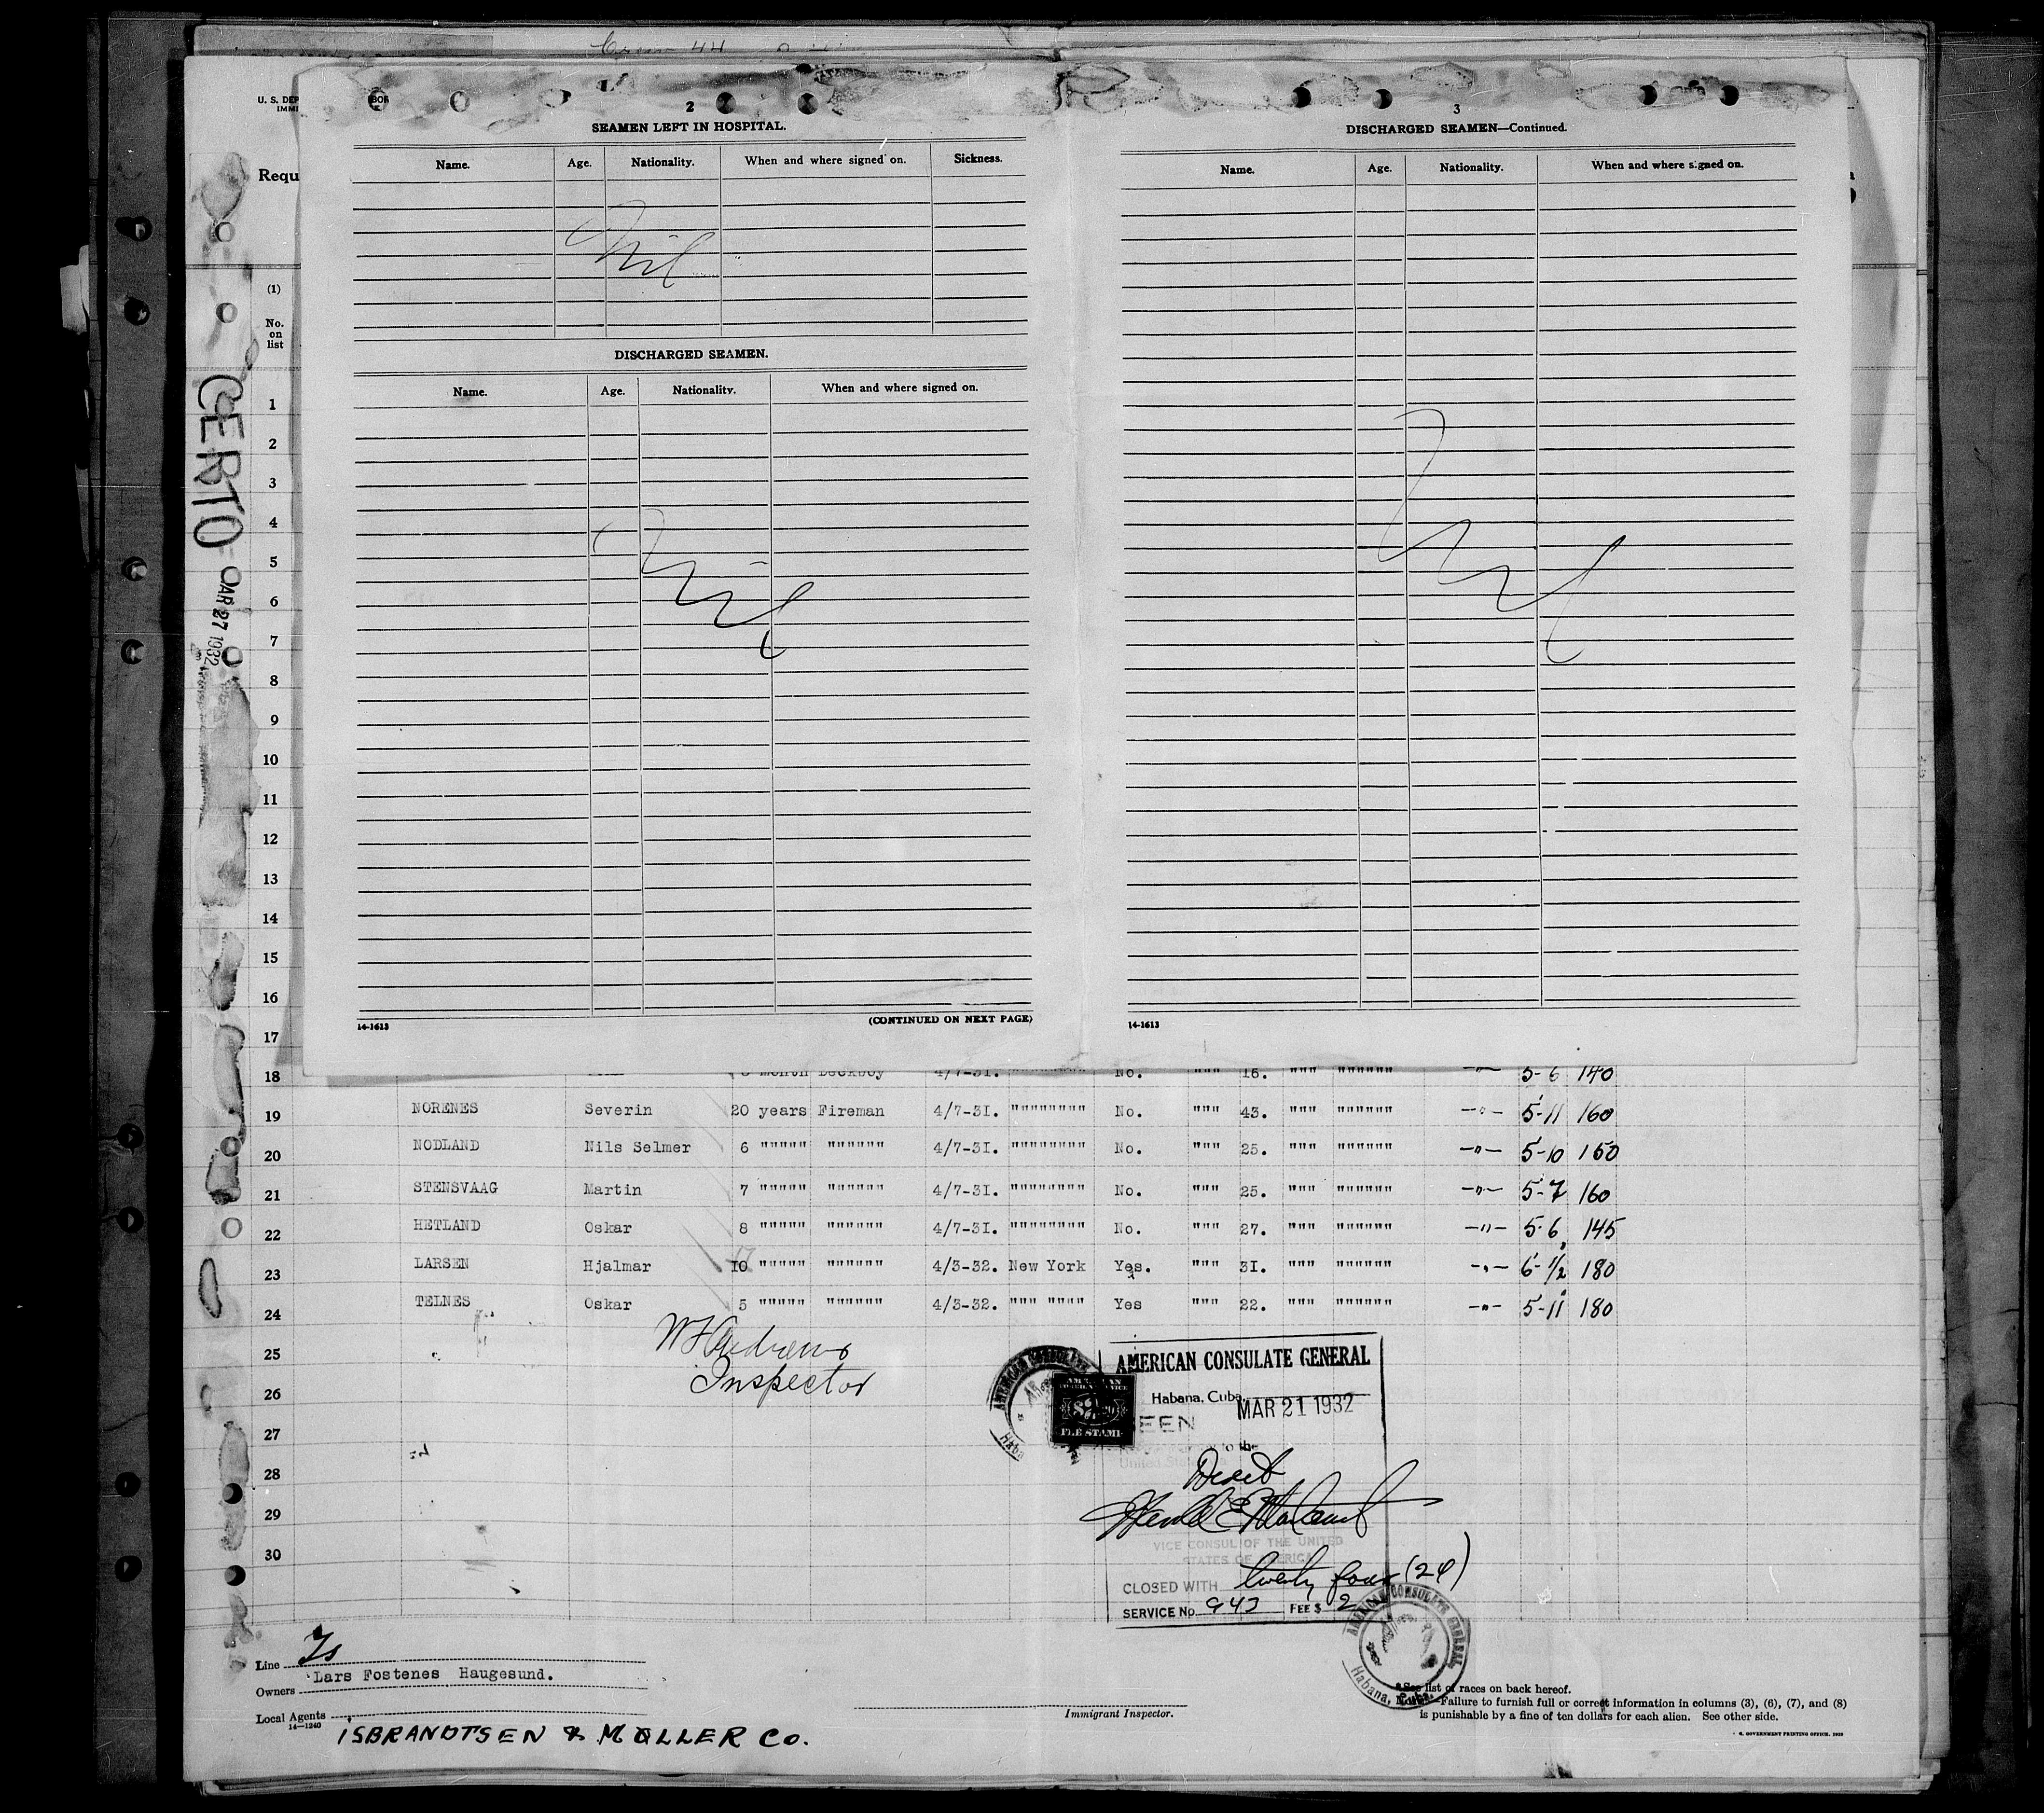 U. S. DEP
IMMI
Requ
(1)
No.
on
list
CERTO
MAR 27 1932
2
SEAMEN LEFT IN HOSPITAL.
Name. Age. Nationality. When and where signed on. Sickness.
Nil
DISCHARGED SEAMEN.
Name. Age. Nationality. When and where signed on.
Nil
14-1613 (CONTINUED ON NEXT PAGE)
3
DISCHARGED SEAMEN—Continued.
Name. Age. Nationality. When and where signed on.
Nil
14-1613
1
2
3
4
5
6
7
8
9
10
11
12
13
14
15
16
17
18 month Deckboy 4/7-31. """""""" No. """ 16. """ """""" —"— 5-6 140
19 NORENES Severin 20 years Fireman 4/7-31. """""""" No. """ 43. """ """""" —"— 5-11 160
20 NODLAND Nils Selmer 6 """"" """""" 4/7-31. """""""" No. """ 25. """ """""" —"— 5-10 150
21 STENSVAAG Martin 7 """"" """""" 4/7-31. """""""" No. """ 25. """ """""" —"— 5-7 160
22 HETLAND Oskar 8 """"" """""" 4/7-31. """""""" No. """ 27. """ """""" —"— 5-6 145
23 LARSEN Hjalmar 10 """"" """""" 4/3-32. New York Yes. """ 31. """ """""" —"— 6-1/2 180
24 TELNES Oskar 5 """"" """""" 4/3-32. """ """" Yes """ 22. """ """""" —"— 5-11 180
25
26
27
28
29
30
W H Andrews
Inspector
AMERICAN CONSULATE GENERAL
Habana, Cuba. MAR 21 1932
SEEN
to the
United States
VICE CONSUL OF THE UNITED
STATES OF AMERICA
CLOSED WITH twenty four (24)
SERVICE No. 943 FEE $ 2
AMERICAN CONSULATE GENERAL
Habana, Cuba.
AMERICAN
FOREIGN SERVICE
$2.00
FEE STAMP
Line
Owners Lars Fostenes Haugesund.
Local Agents
14—1240
ISBRANDTSEN & MOLLER CO.
Immigrant Inspector.
*See list of races on back hereof.
NOTE.—Failure to furnish full or correct information in columns (3), (6), (7), and (8)
is punishable by a fine of ten dollars for each alien. See other side.